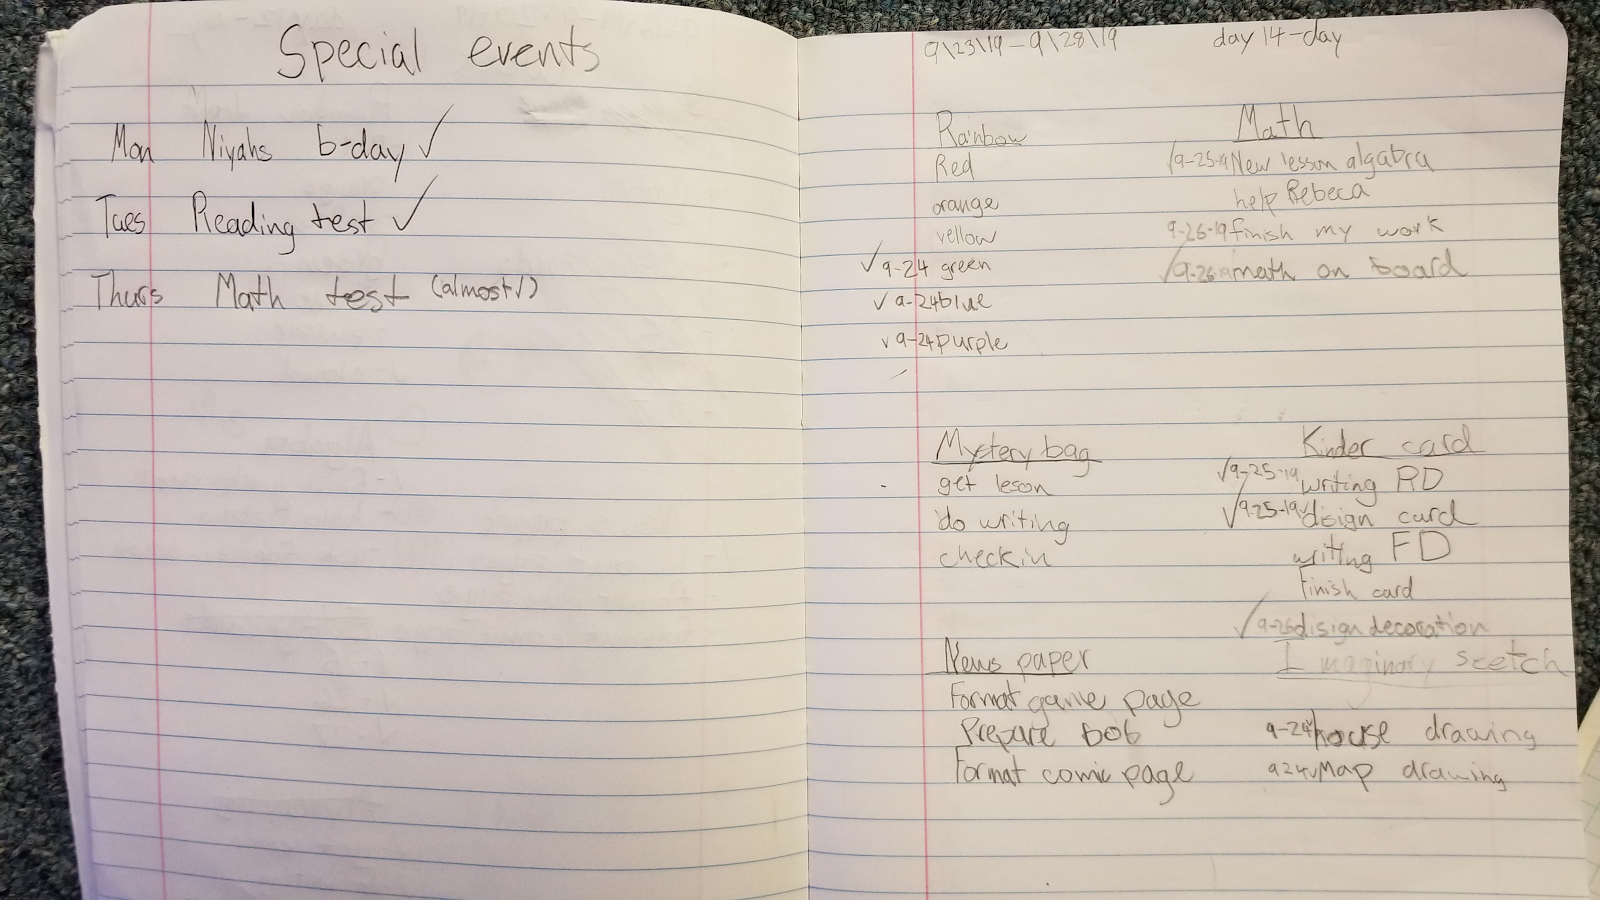 Special events
Mon Niyahs b-day ✓
Tues Reading test ✓
Thurs Math test (almost✓)
9\23\19 - 9\28\19 day 14-day
Rainbow
Red
orange
yellow
✓9-24 green
✓9-24 blue
✓9-24 purple
Math
✓9-25-19 New lesson algabra
help Rebeca
9-26-19 finish my work
✓9-26 math on board
Mystery bag
get leson
do writing
check in
Kinder card
✓9-25-19 writing RD
✓9-25-19 disign card
writing FD
Finish card
✓9-26 disign decoration
News paper
Format game page
Prepare bob
Format comic page
Imaginary scetch
9-24✓ house drawing
924✓ Map drawing